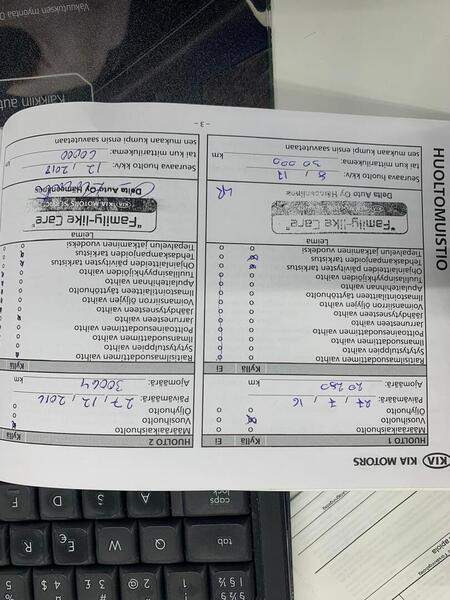 KIA MOTORS
HUOLTOMUISTIO
HUOLTO 1 Kyllä Ei
Määräaikaishuolto
Vuosihuolto
Öljyhuolto
Päivämäärä: 27, 7, 16
Ajomäärä: 20280 km
Kyllä Ei
Raitisilmasuodattimen vaihto
Sytytystulppien vaihto
Ilmansuodattimen vaihto
Polttoainesuodattimen vaihto
Jarrunesteen vaihto
Jäähdytysnesteen vaihto
Voimansiirron öljyjen vaihto
Ilmastointilaitteen täyttöhuolto
Apulaitehihnan vaihto
Tuulilasinpyyhkijöiden vaihto
Ohjainlaitteiden päivitysten tarkistus
Tehdaskampanjoiden tarkistus
Tiepalvelun jatkaminen vuodeksi
Leima
"Family-like Care"
Delta Auto Oy Hämeenlinna
Seuraava huolto kk/v: 8, 17
tai kun mittarilukema: 50 000 km
sen mukaan kumpi ensin saavutetaan
HUOLTO 2 Kyllä
Määräaikaishuolto
Vuosihuolto
Öljyhuolto
Päivämäärä: 27, 12, 2016
Ajomäärä: 30064 km
Kyllä
Raitisilmasuodattimen vaihto
Sytytystulppien vaihto
Ilmansuodattimen vaihto
Polttoainesuodattimen vaihto
Jarrunesteen vaihto
Jäähdytysnesteen vaihto
Voimansiirron öljyjen vaihto
Ilmastointilaitteen täyttöhuolto
Apulaitehihnan vaihto
Tuulilasinpyyhkijöiden vaihto
Ohjainlaitteiden päivitysten tarkistus
Tehdaskampanjoiden tarkistus
Tiepalvelun jatkaminen vuodeksi
Leima
"Family-like Care"
Delta Auto Oy Hämeenlinna
Seuraava huolto kk/v: 12, 2017
tai kun mittarilukema: 60000
sen mukaan kumpi ensin saavutetaan
- 3 -
Vakuutuksen myöntää
Kaikkiin aut
tab Q W E € R
caps lock A S D F
1 2 @ 3 £ 4 $ 5